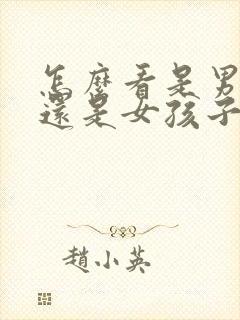 怎麼看是男
還是女孩子
趙小英